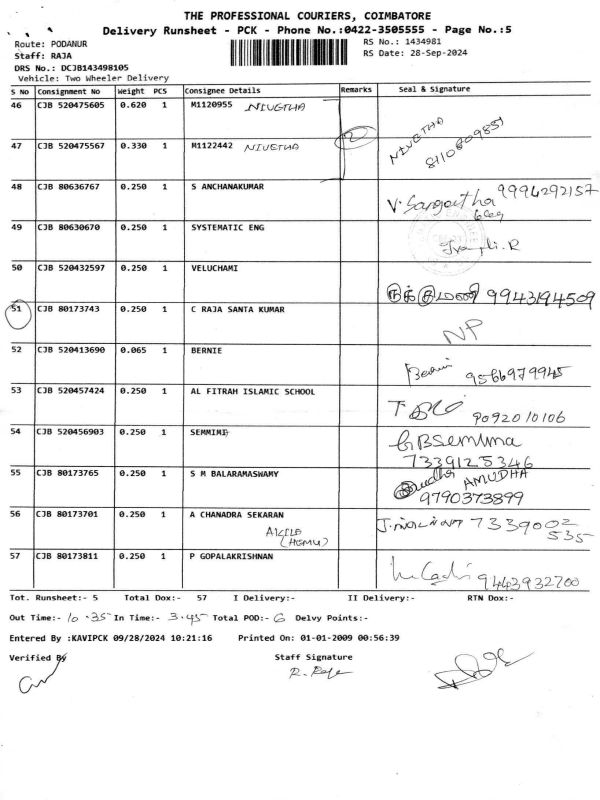 THE PROFESSIONAL COURIERS, COIMBATORE
Delivery Runsheet - PCK - Phone No.:0422-3505555 - Page No.:5
Route: PODANUR RS No.: 1434981
Staff: RAJA RS Date: 28-Sep-2024
DRS No.: DCJB143498105
Vehicle: Two Wheeler Delivery
S No Consignment No Weight PCS Consignee Details Remarks Seal & Signature
46 CJB 520475605 0.620 1 M1120955 NIVETHA
47 CJB 520475567 0.330 1 M1122442 NIVETHA 2 NIVETHA 8110809851
48 CJB 80636767 0.250 1 S ANCHANAKUMAR V. Sangeetha 9994292157
49 CJB 80630670 0.250 1 SYSTEMATIC ENG
50 CJB 520432597 0.250 1 VELUCHAMI 9943194509
51 CJB 80173743 0.250 1 C RAJA SANTA KUMAR NP
52 CJB 520413690 0.065 1 BERNIE 9566979945
53 CJB 520457424 0.250 1 AL FITRAH ISLAMIC SCHOOL 9092010106
54 CJB 520456903 0.250 1 SEMMIMI
7339125346
55 CJB 80173765 0.250 1 S M BALARAMASWAMY AMUDHA
9790373899
56 CJB 80173701 0.250 1 A CHANADRA SEKARAN 7339002
535
57 CJB 80173811 0.250 1 P GOPALAKRISHNAN 9443932700
Tot. Runsheet:- 5 Total Dox:- 57 I Delivery:- II Delivery:- RTN Dox:-
Out Time:- 10.35 In Time:- 3.45 Total POD:- 6 Delvy Points:-
Entered By :KAVIPCK 09/28/2024 10:21:16 Printed On: 01-01-2009 00:56:39
Verified By Staff Signature